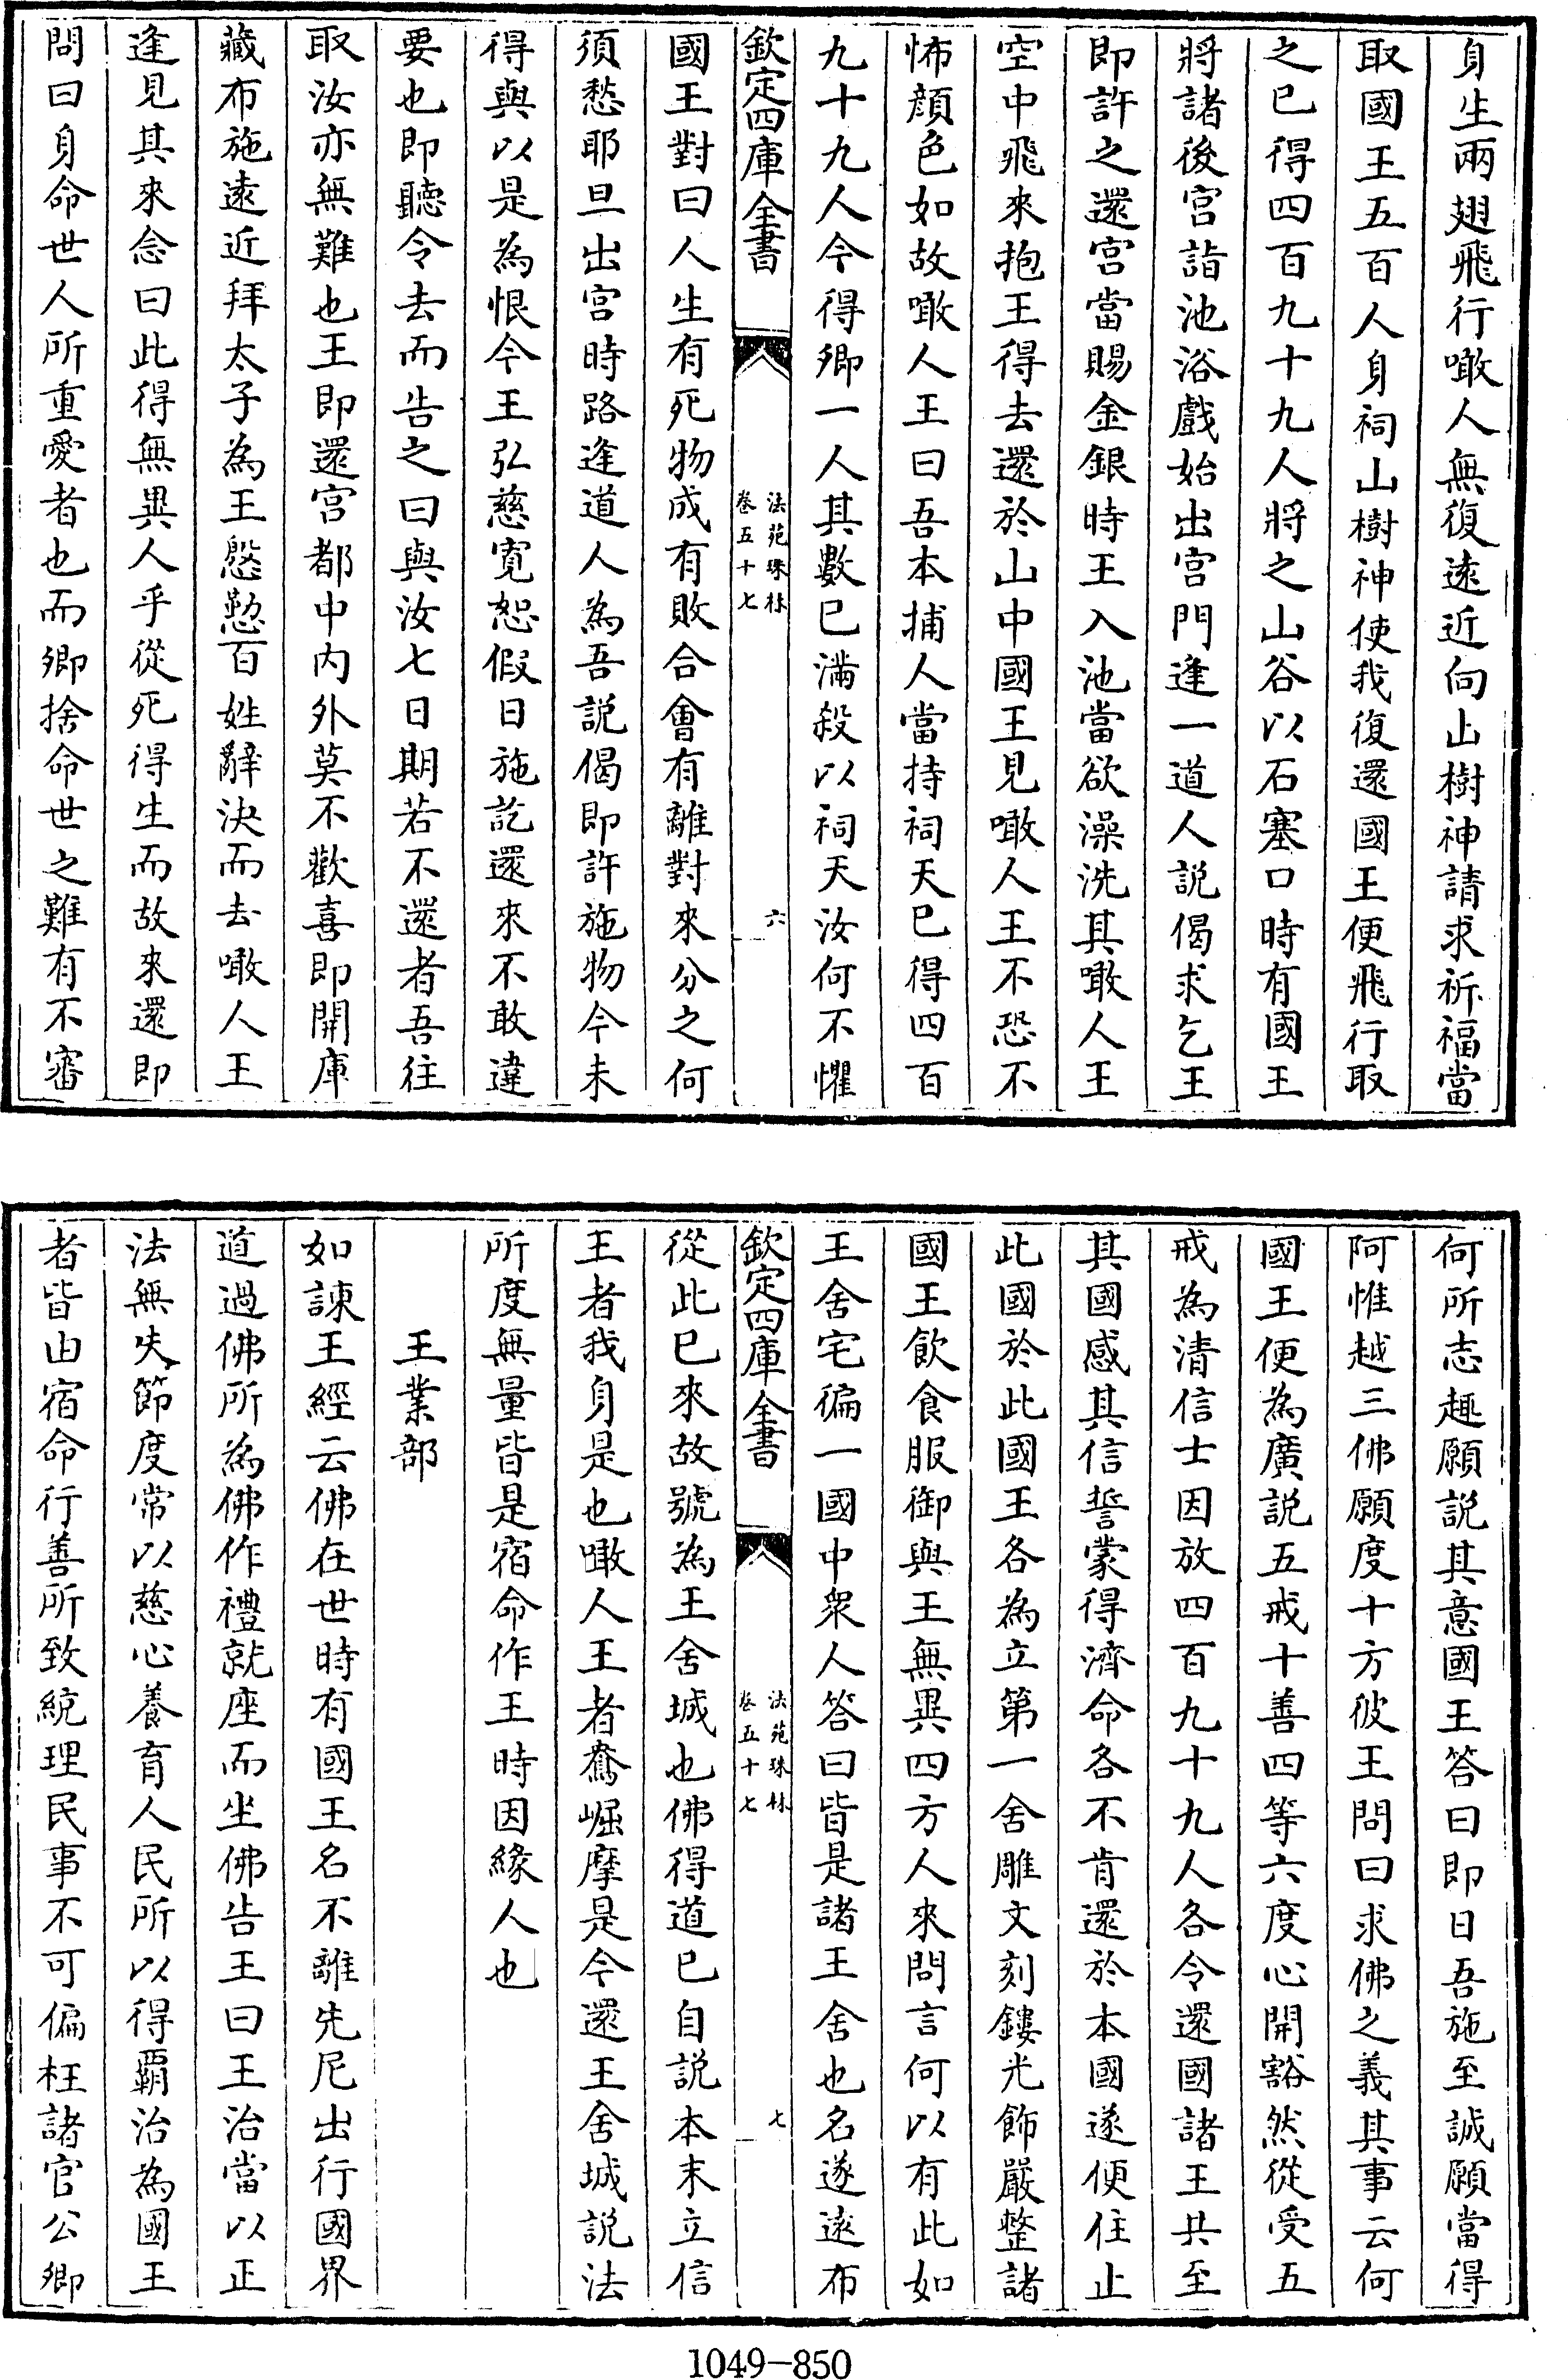 身生兩翅飛行噉人無復遠近向山樹神請求祈福當
取國王五百人身祠山樹神使我復還國王便飛行取
之已得四百九十九人將之山谷以石塞口時有國王
將諸後宫詣池浴戲始出宫門逢一道人説偈求乞王
即許之還宫當賜金銀時王入池當欲澡洗其噉人王
空中飛來抱王得去還於山中國王見噉人王不恐不
怖顔色如故噉人王曰吾本捕人當持祠天已得四百
九十九人今得卿一人其數已滿殺以祠天汝何不懼
欽定四庫全書
法苑珠林
卷五十七
六
國王對曰人生有死物成有敗合會有離對來分之何
須愁耶旦出宫時路逢道人為吾説偈即許施物今未
得與以是為恨今王弘慈寛恕假日施訖還來不敢違
要也即聽令去而告之曰與汝七日期若不還者吾往
取汝亦無難也王即還宫都中内外莫不歡喜即開庫
藏布施遠近拜太子為王慇懃百姓辭決而去噉人王
逢見其來念曰此得無異人乎從死得生而故來還即
問曰身命世人所重愛者也而卿捨命世之難有不審
何所志趣願説其意國王答曰即日吾施至誠願當得
阿惟越三佛願度十方彼王問曰求佛之義其事云何
國王便為廣説五戒十善四等六度心開豁然從受五
戒為清信士因放四百九十九人各令還國諸王共至
其國感其信誓蒙得濟命各不肯還於本國遂便住止
此國於此國王各為立第一舍雕文刻鏤光飾嚴整諸
國王飲食服御與王無異四方人來問言何以有此如
王舍宅徧一國中衆人答曰皆是諸王舍也名遂遠布
欽定四庫全書
法苑珠林
卷五十七
七
從此已來故號為王舍城也佛得道已自説本末立信
王者我身是也噉人王者鴦崛摩是今還王舍城説法
所度無量皆是宿命作王時因緣人也
王業部
如諫王經云佛在世時有國王名不離先尼出行國界
道過佛所為佛作禮就座而坐佛告王曰王治當以正
法無失節度常以慈心養育人民所以得霸治為國王
者皆由宿命行善所致統理民事不可偏枉諸官公卿
1049-850